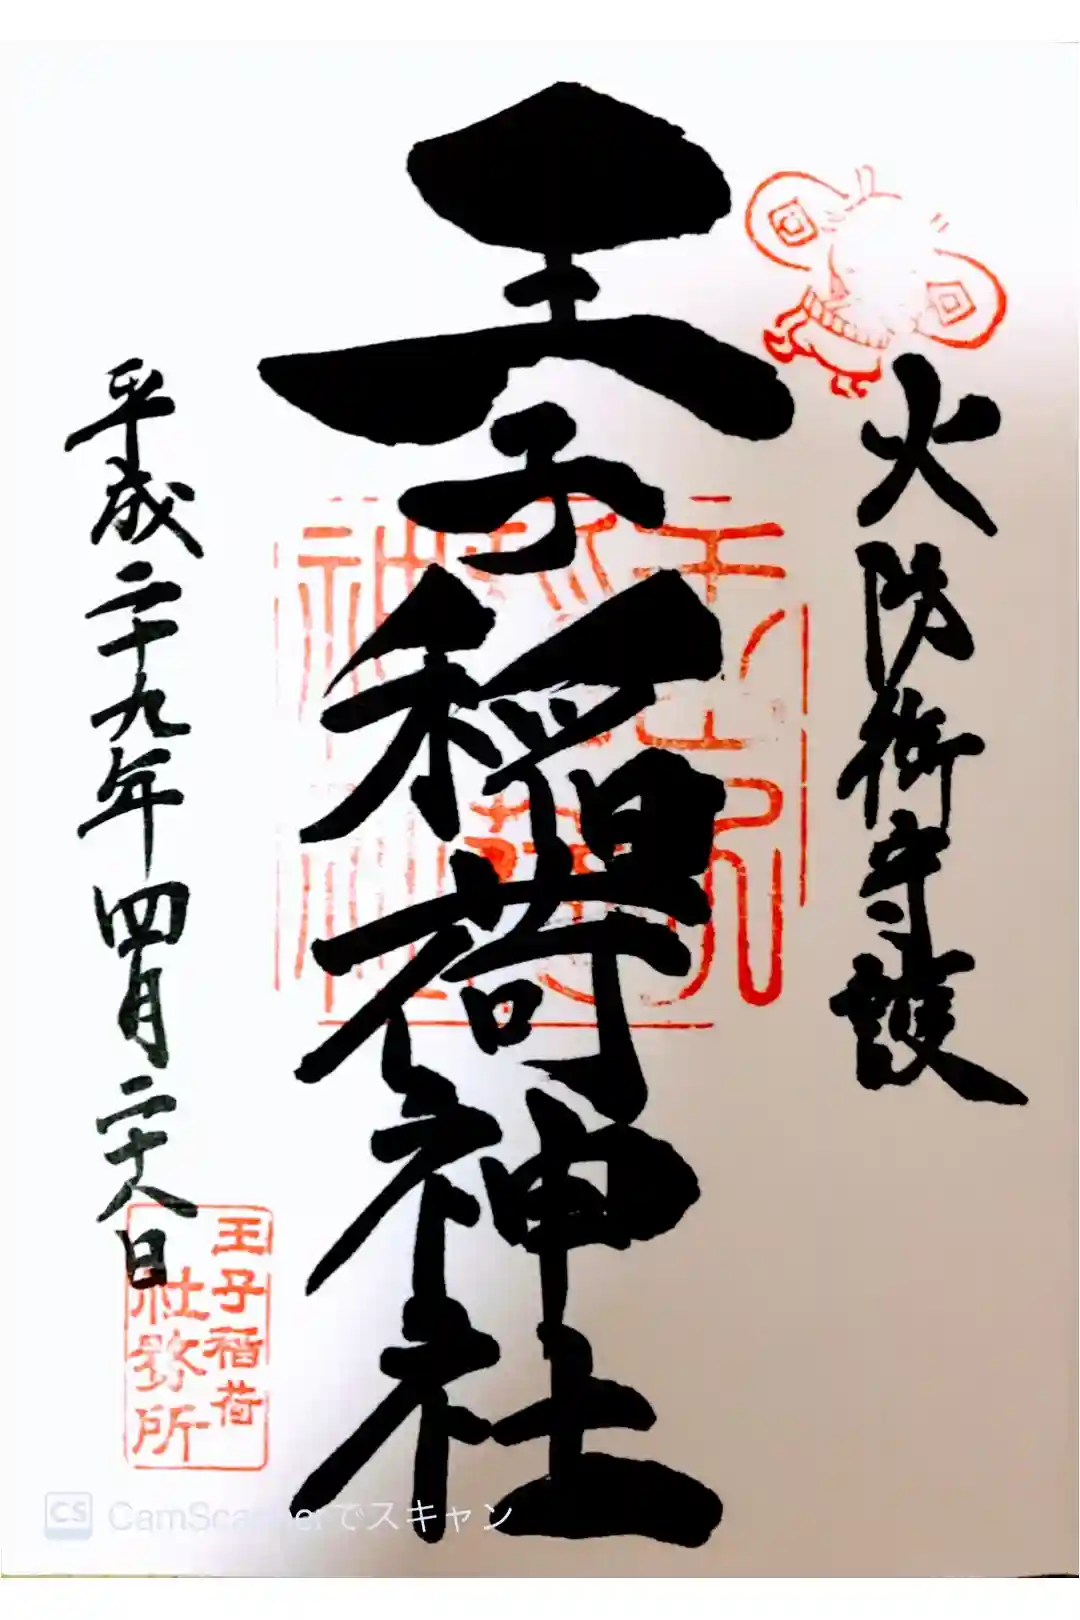 火防御守護
王子稲荷神社
平成二十九年四月二十八日
王子稲荷
社務所
CS CamScannerでスキャン